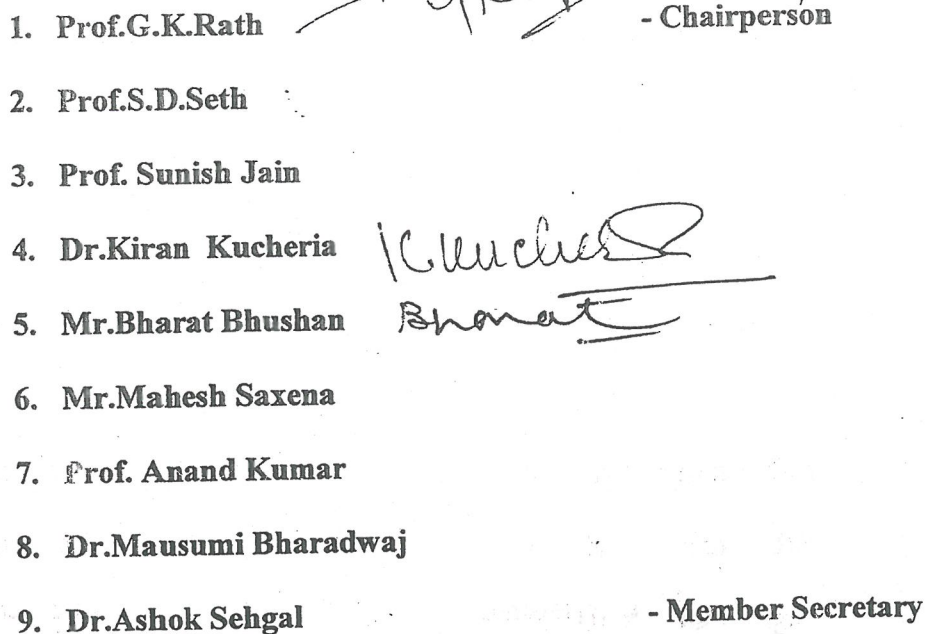 1. Prof.G.K.Rath - Chairperson
2. Prof.S.D.Seth
3. Prof. Sunish Jain
4. Dr.Kiran Kucheria KKucheria
5. Mr.Bharat Bhushan Bharat
6. Mr.Mahesh Saxena
7. Prof. Anand Kumar
8. Dr.Mausumi Bharadwaj
9. Dr.Ashok Sehgal - Member Secretary